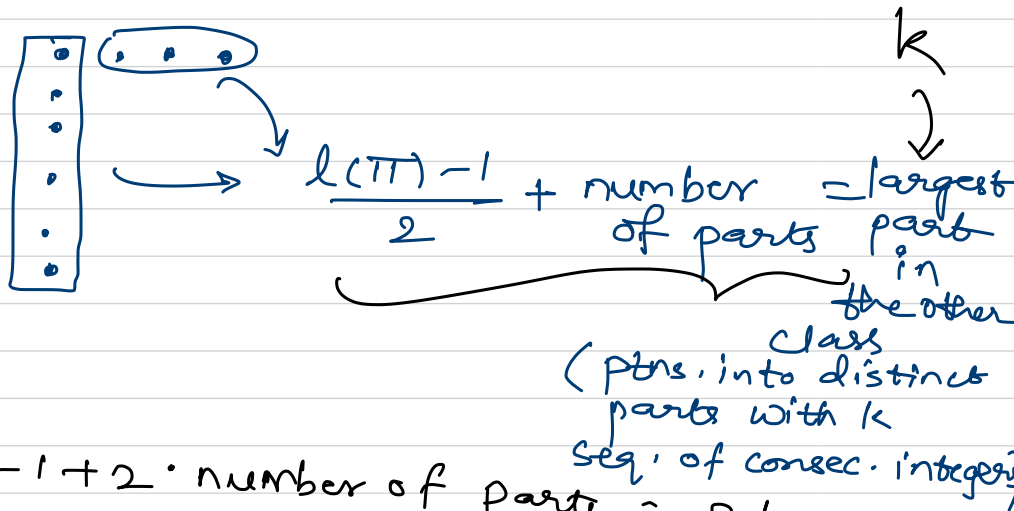 k
l(π) - 1 / 2 + number of parts = largest part in the other class
(ptns. into distinct parts with k seq. of consec. integers
-1 + 2 · number of parts